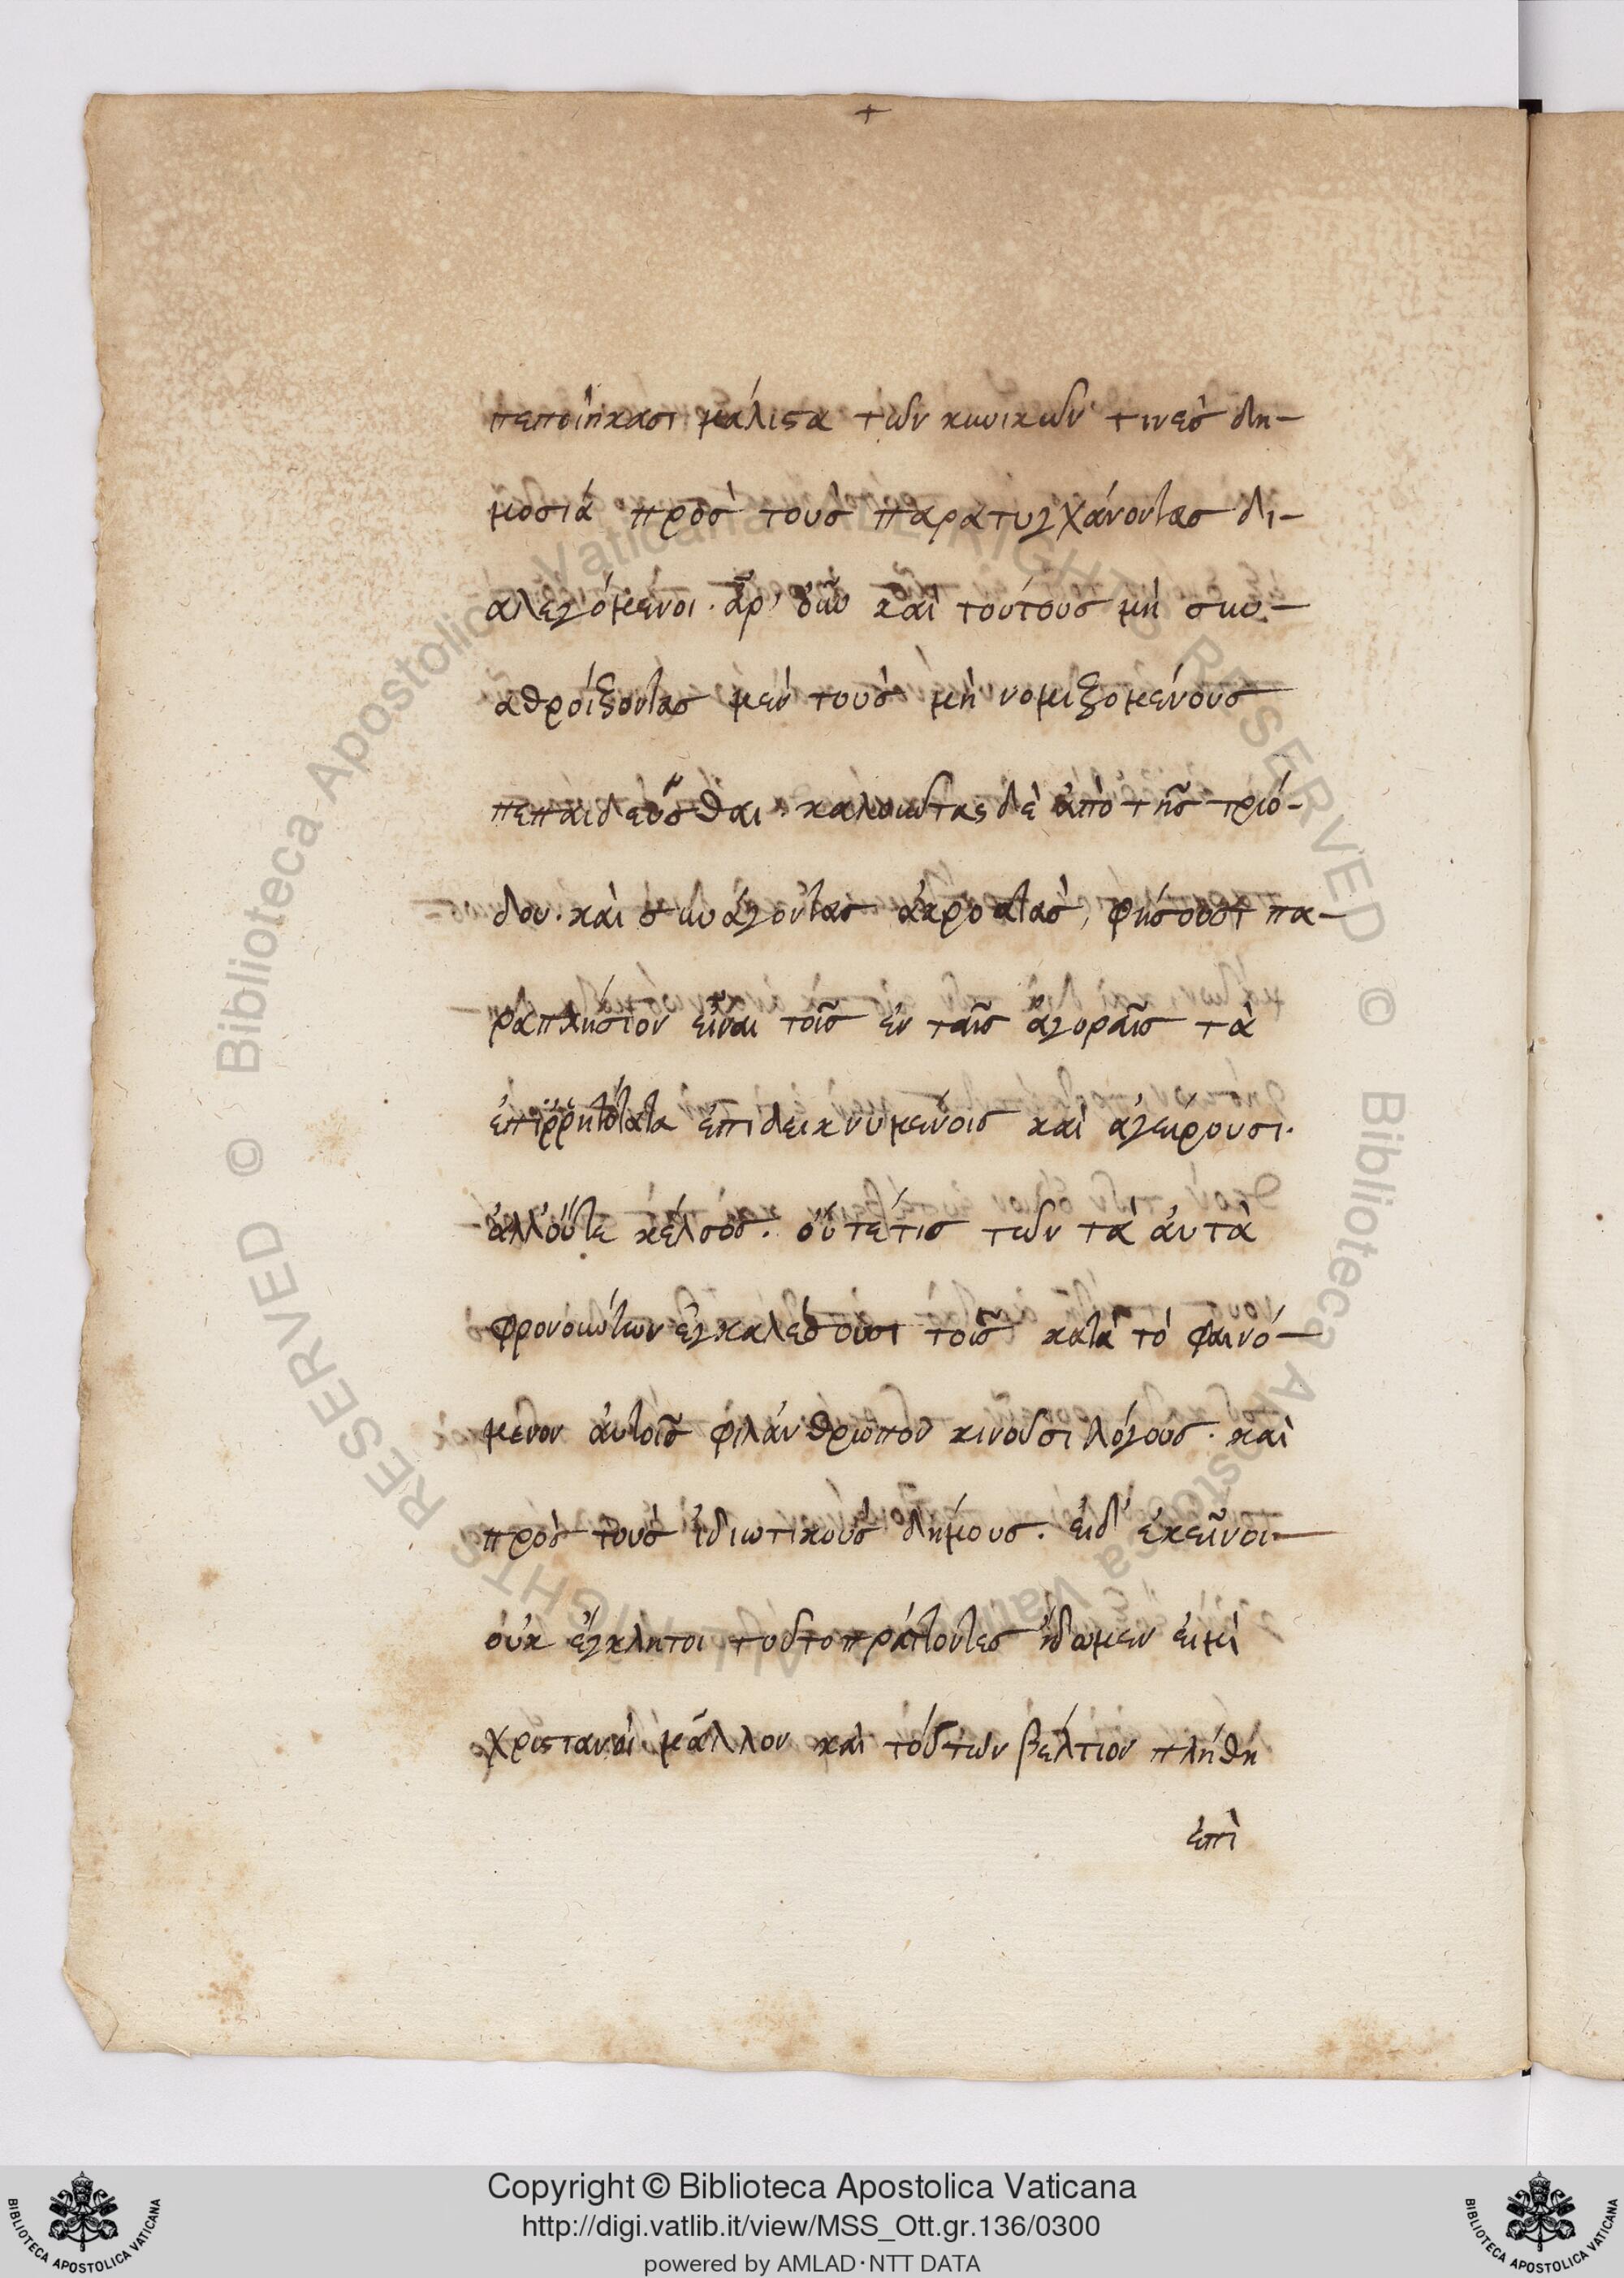 +
πεποίηκασι μάλιςα τῶν κυνικῶν τινεὲσ δη-
μοσιά πρὸσ τοὺσ παρατυγχάνοντασ δι-
αλεγόμενοι. ἆρ' οὖν καὶ τούτουσ μὴ συν-
αθροίζοντασ μὲν τοὺσ μὴ νομιζομένουσ
πεπαιδεῦσθαι. καλοῦντας δὲ ἀπὸ τῆσ τριό-
δου. καὶ συνάγοντασ ἀκροατὰσ, φήσουσι πα-
ραπλήσιον εἶναι τοῖσ ἐν ταῖσ ἀγοραῖσ τὰ
ἐπιῤῥητότατα ἐπιδεικνυμένοισ καὶ ἀγείρουσι.
ἀλλ' οὔτε κέλσοσ. οὔτέτισ τῶν τὰ ἀυτὰ
φρονούντων ἐγκαλέσουσι τοῖσ κατὰ τὸ φαινό-
μενον ἀυτοῖσ φιλάνθρωπον κινοῦσι λόγουσ. καὶ
πρὸσ τοὺσ ἰδιωτικοὺσ δήμουσ. ειδ' ἐκεῖνοι-
οὐκ ἔγκλητοι τοῦτο πράττοντεσ ἴδωμεν ει μὴ
χριςτανοὶ μᾶλλον καὶ τούτων βέλτιον πλήθη
ἐπὶ
Copyright © Biblioteca Apostolica Vaticana
http://digi.vatlib.it/view/MSS_Ott.gr.136/0300
powered by AMLAD·NTT DATA
BIBLIOTECA APOSTOLICA VATICANA
BIBLIOTECA APOSTOLICA VATICANA
© Biblioteca Apostolica Vaticana ALL RIGHTS RESERVED
© Biblioteca Apostolica Vaticana ALL RIGHTS RESERVED